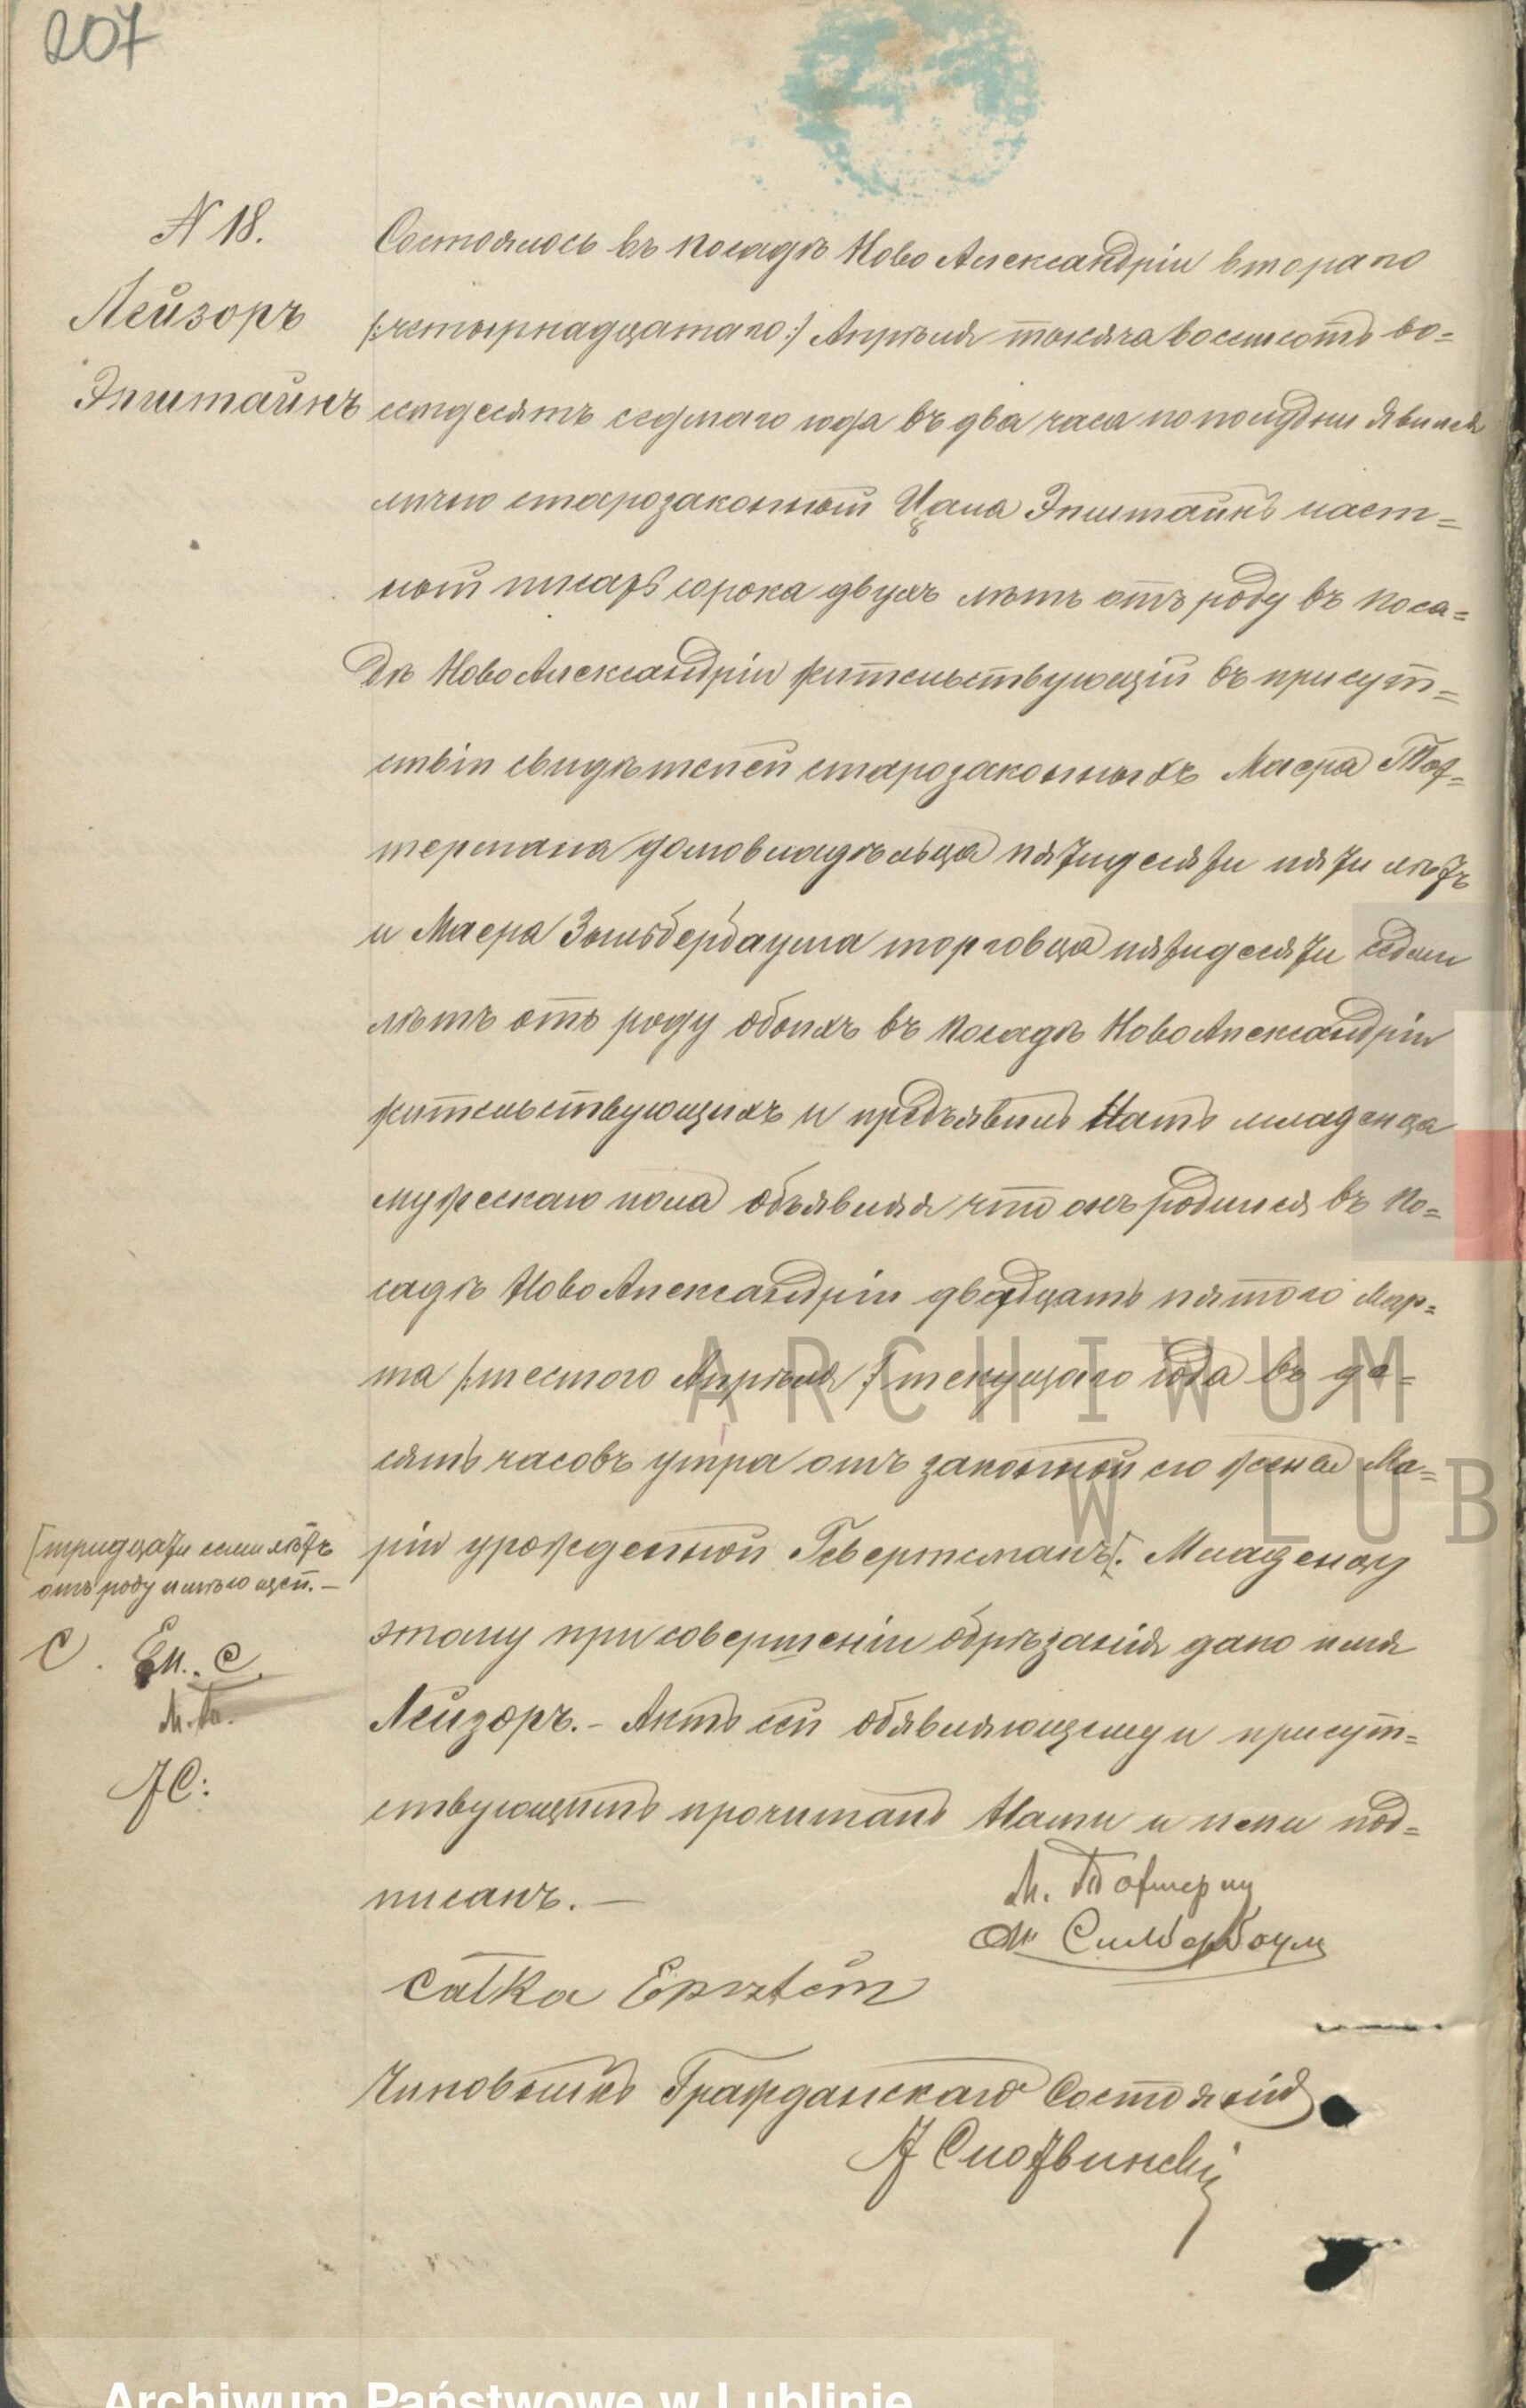 207
N 18.
Лейзоръ
Эпштайнъ
Состоялось въ посадѣ Ново Александріи втораго
/:четырнадцатаго:/ Апрѣля тысяча восемсотъ во=
семдесятъ седмаго года въ два часа по полудни явился
лично старозаконный Цала Эпштайнъ част=
ный писарь сорока двухъ лѣтъ отъ роду въ поса=
дѣ Ново Александріи жительствующій въ присут=
ствіи свидѣтелей старозаконныхъ Маера Тоф=
термана домовладѣльца пятидесяти пяти лѣтъ
и Маера Зыльбербаума торговца пятидесяти седми
лѣтъ отъ роду обоихъ въ посадѣ Ново Александріи
жительствующихъ и предъявилъ Намъ младенца
мужескаго пола объявляя что онъ родился въ по=
садѣ Ново Александріи двадцать пятого Мар=
та /:шестого Апрѣля:/ текущаго года въ де=
сять часовъ утра отъ законной его жены Ма=
ріи урожденной Гевертсманъ[. Младенцу
[тридцати семи лѣтъ
отъ роду имѣющей.—
С. Еп. С.
М. Т.
JС:
этому при совершеніи обрѣзанія дано имя
Лейзоръ.- Актъ сей объявляющему и присут=
ствующимъ прочитанъ Нами и ними под=
писанъ.—
М. Тофтерман
М Сильбербаум
Calka Epsztein
Чиновникъ Гражданскаго Состоянія
ARCHIWUM
W LUB
Archiwum Państwowe w Lublinie